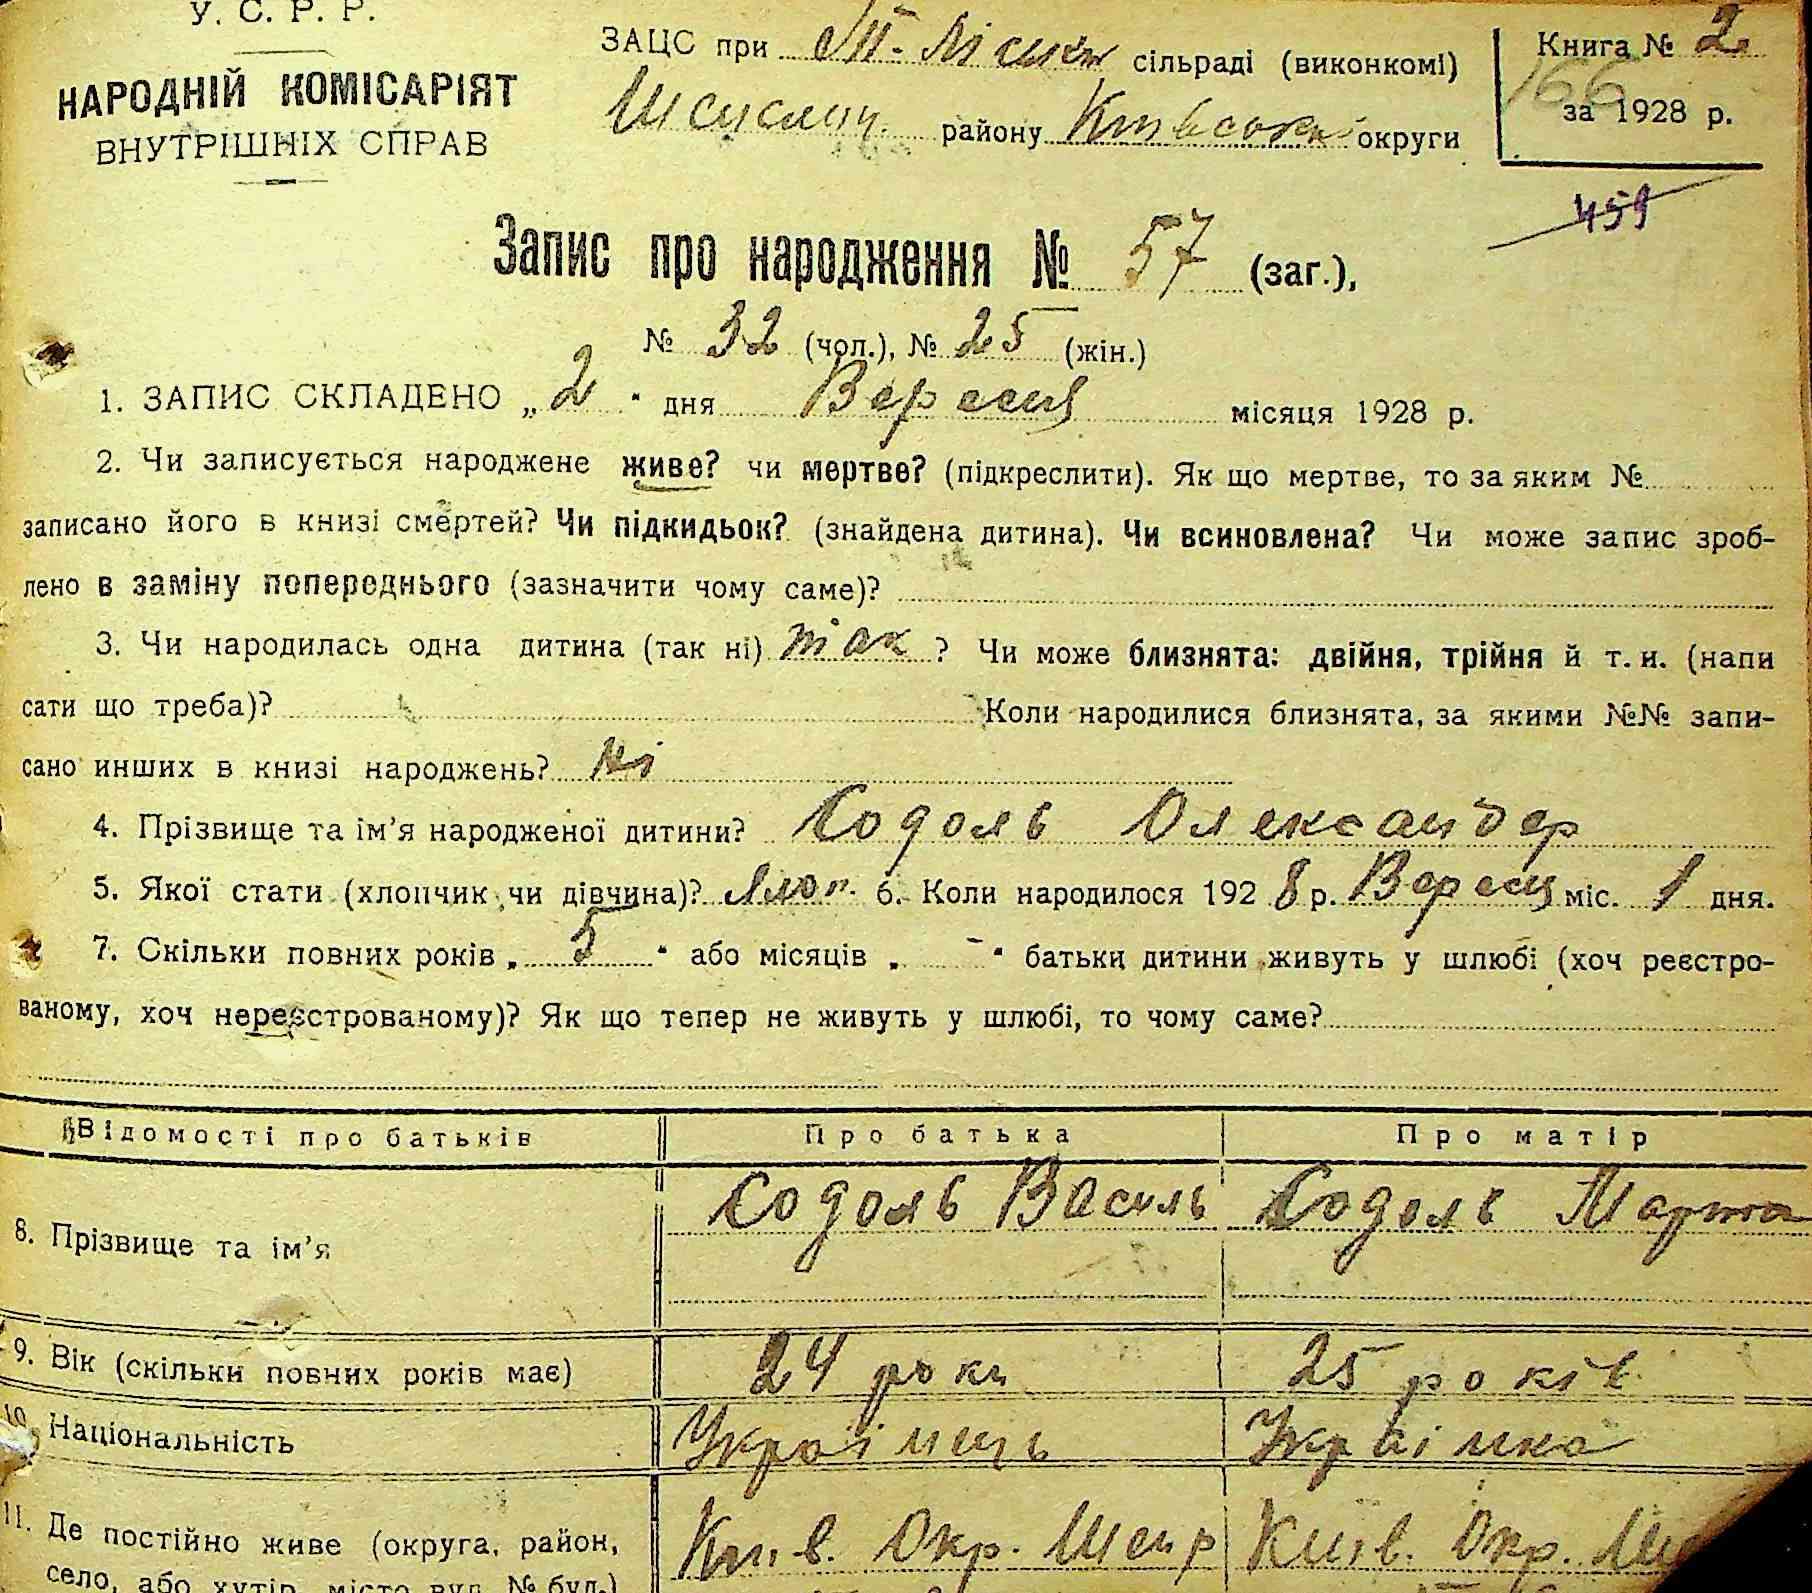 У. С. Р. Р.
НАРОДНІЙ КОМІСАРІЯТ
ВНУТРІШНІХ СПРАВ
ЗАЦС при сільраді (виконкомі)
району Київської округи
Книга № 2
166
за 1928 р.
459
Запис про народження № 57 (заг.),
№ 32 (чол.), № 25 (жін.)
1. ЗАПИС СКЛАДЕНО „2" дня Вересня місяця 1928 р.
2. Чи записується народжене живе? чи мертве? (підкреслити). Як що мертве, то за яким №
записано його в книзі смертей? Чи підкидьок? (знайдена дитина). Чи всиновлена? Чи може запис зроб-
лено в заміну попереднього (зазначити чому саме)?
3. Чи народилась одна дитина (так ні) так ? Чи може близнята: двійня, трійня й т. и. (напи
сати що треба)? Коли народилися близнята, за якими №№ запи-
сано инших в книзі народжень? Ні
4. Прізвище та ім'я народженої дитини? Содоль Олександер
5. Якої стати (хлопчик чи дівчина)? Хлоп. 6. Коли народилося 1928 р. Вересня міс. 1 дня.
7. Скільки повних років „ 5 " або місяців „ - " батьки дитини живуть у шлюбі (хоч реєстро-
ваному, хоч нереєстрованому)? Як що тепер не живуть у шлюбі, то чому саме?
Відомості про батьків Про батька Про матір
8. Прізвище та ім'я Содоль Василь Содоль Марта
9. Вік (скільки повних років має) 24 роки 25 років
10. Національність Українець Українка
11. Де постійно живе (округа, район, Київ. Окр. Київ. Окр.
село, або хутір, місто вул. № буд.)